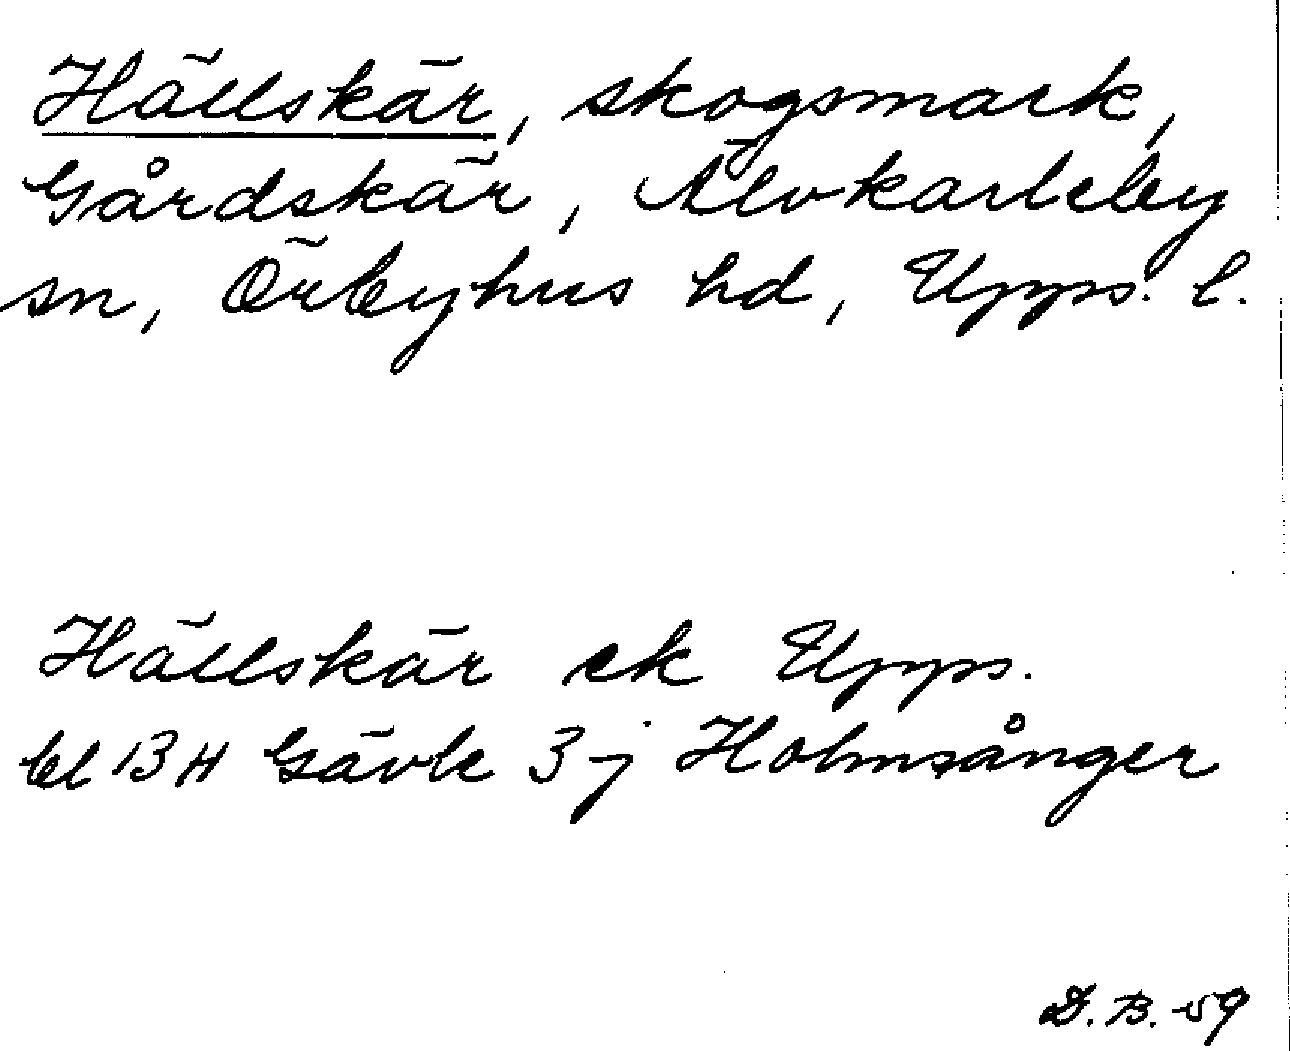 Hällskär, skogsmark,
Gårdskär, Älvkarleby
sn, Örbyhus hd, Upps. l.
Hällskär ek Upps.
bl 13 H Gävle 3 j Holmsånger
D. B. -59